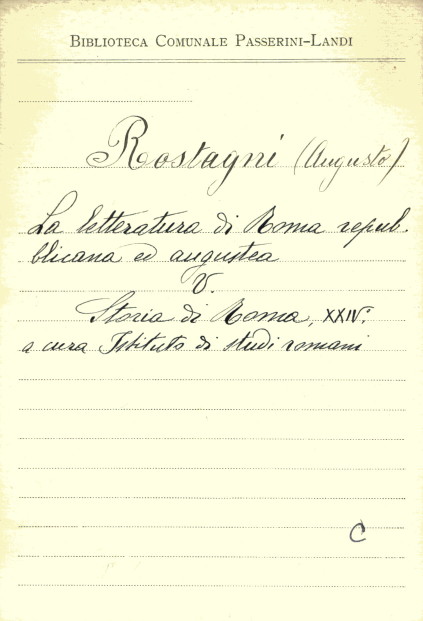 BIBLIOTECA COMUNALE PASSERINI-LANDI
Rostagni (Augusto)
La letteratura di Roma repub.
blicana ed augustea
V.
Storia di Roma, XXIV.
a cura Istituto di studi romani
C